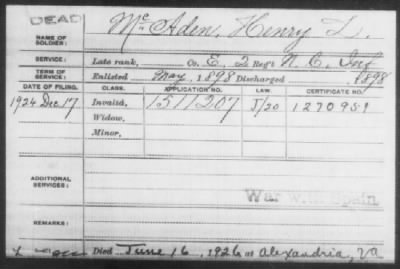 DEAD
NAME OF SOLDIER: McAden, Henry L.
SERVICE: Late rank, Co. E, 2 Reg't N. C. Inf
TERM OF SERVICE: Enlisted May, 1898 Discharged , 1898
DATE OF FILING. CLASS. APPLICATION NO. LAW. CERTIFICATE NO.
1924 Dec 17 Invalid, 1511207 J/20 1270951
Widow,
Minor,
ADDITIONAL SERVICES: War with Spain
REMARKS:
Died June 16, 1926 at Alexandria, Va